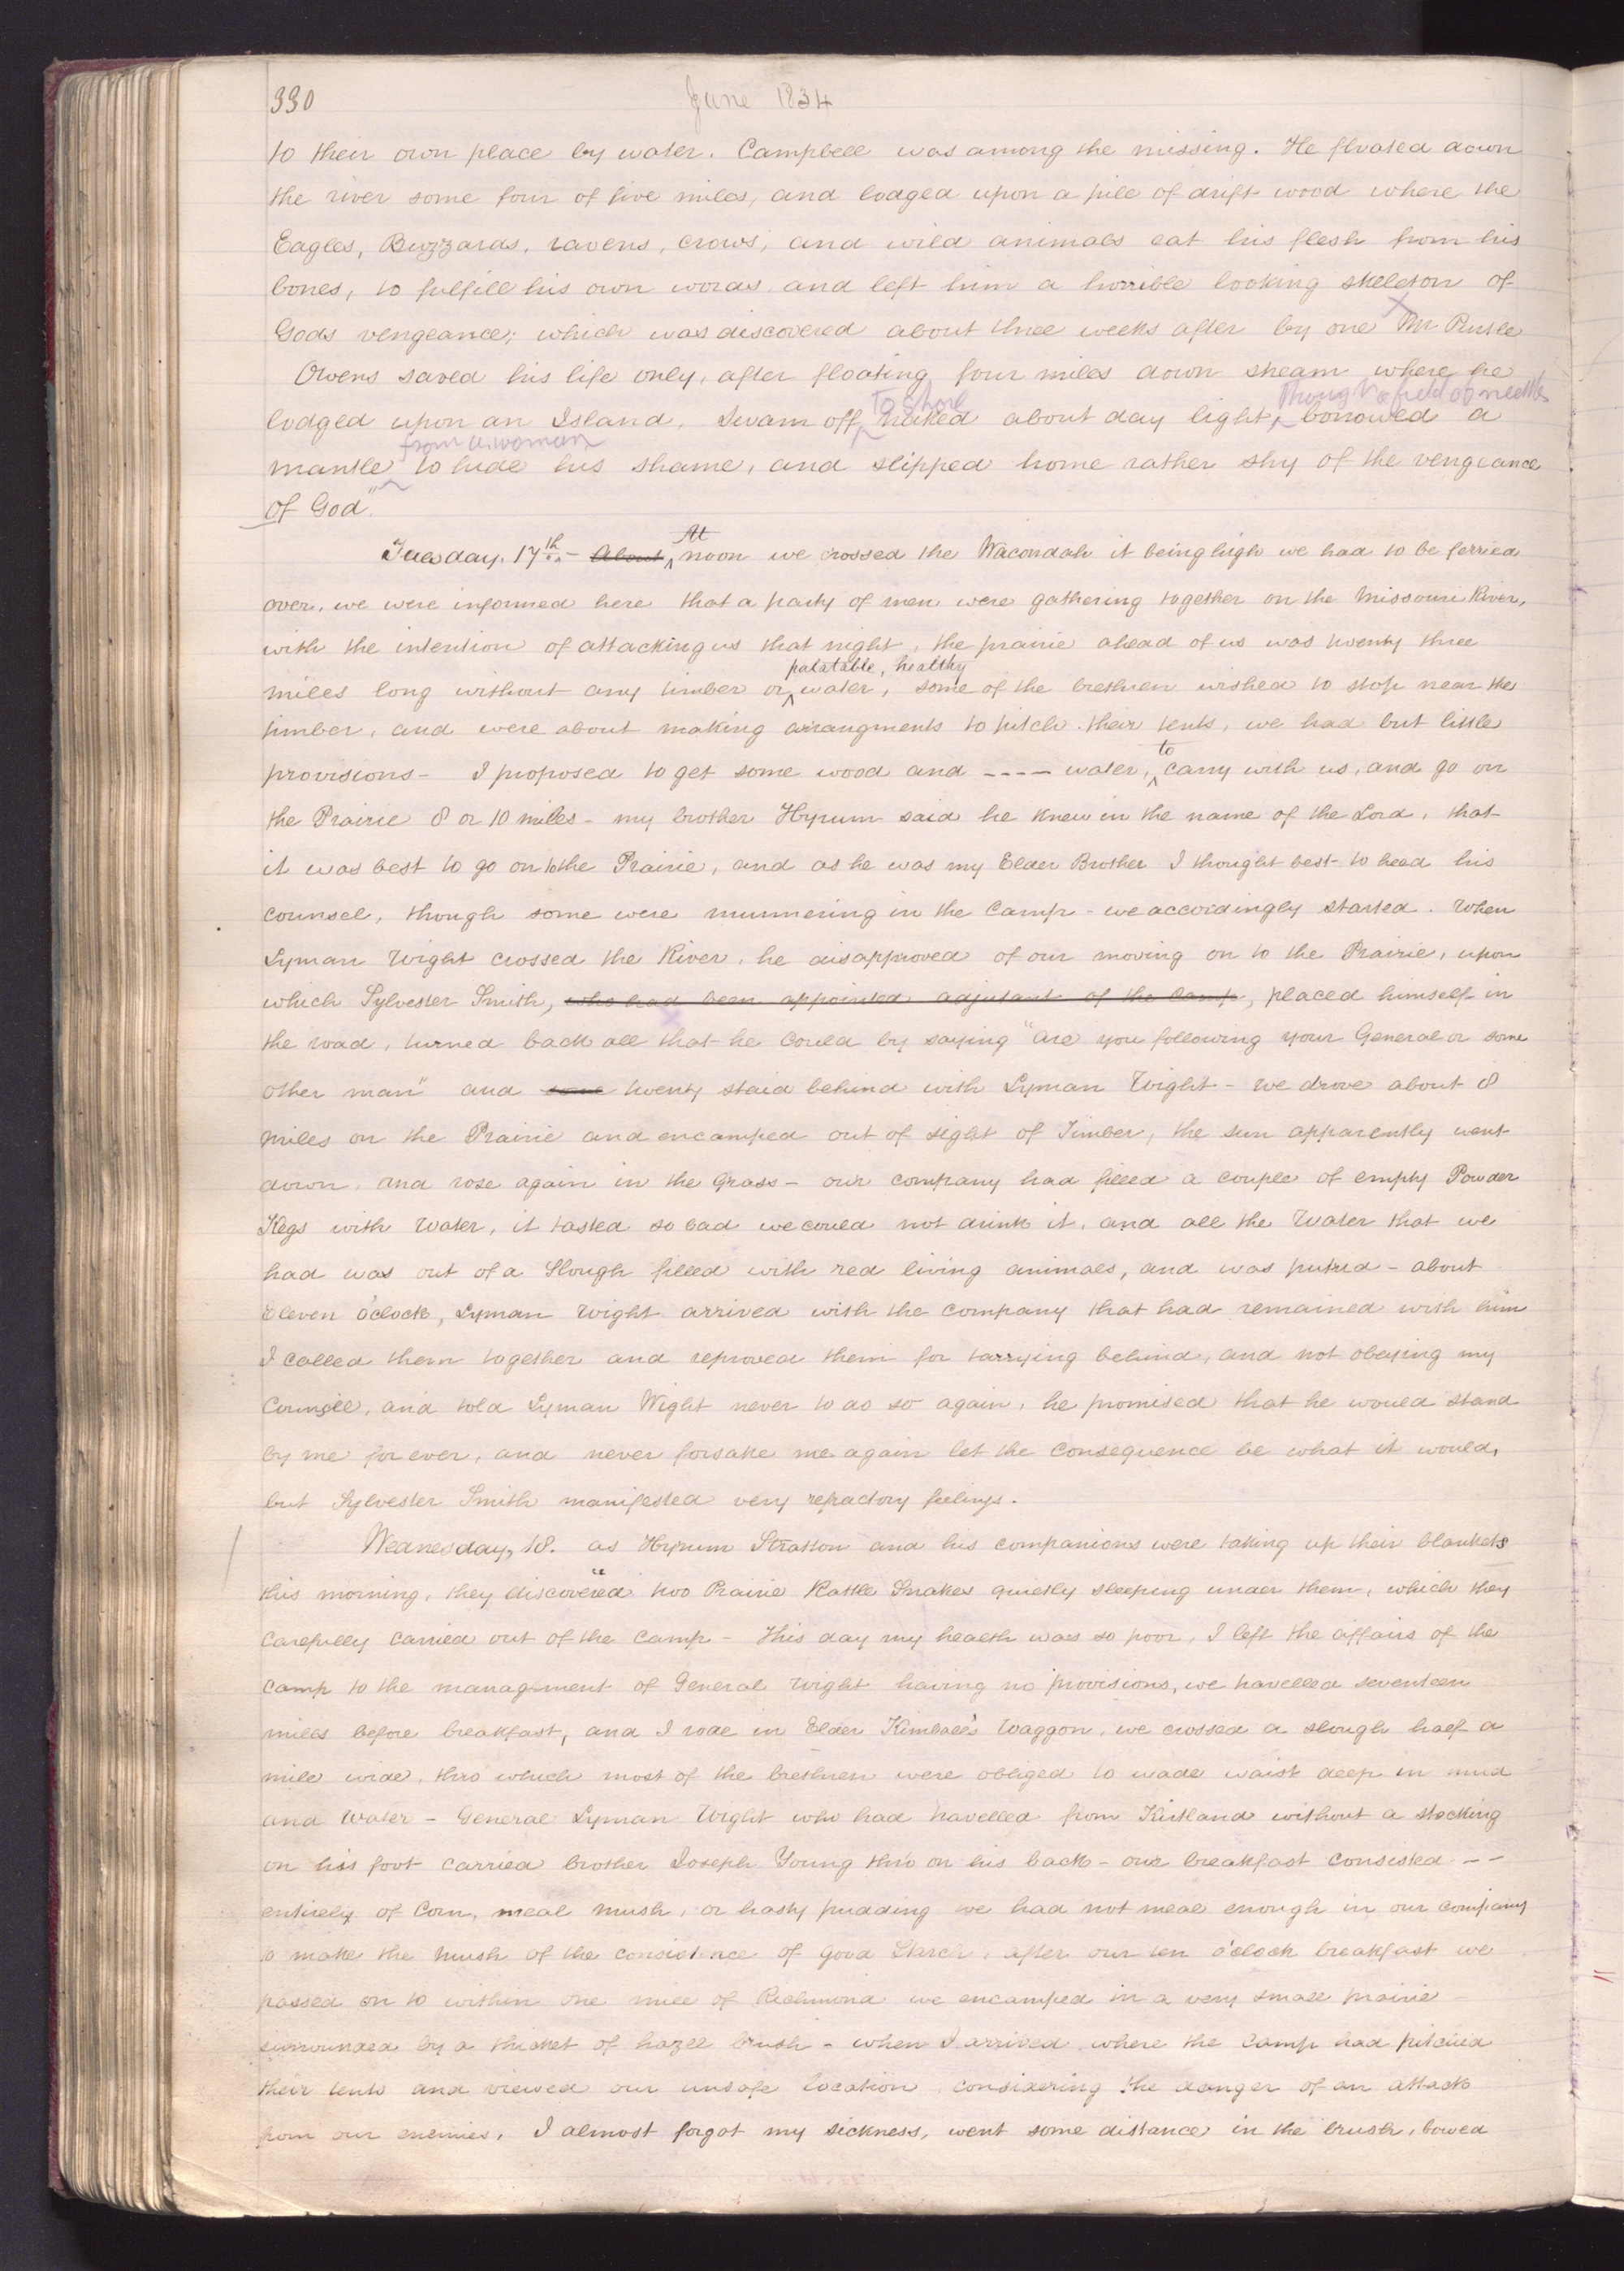 330
June 1834
to their own place by water. Campbell was among the missing. He floated down
the river some four of five miles, and lodged upon a pile of drift wood where the
Eagles, Buzzards, ravens, crows, and wild animals eat his flesh from his
bones, to fulfill his own words, and left him a horrible looking skeleton of
Gods vengeance; which was discovered about three weeks after by one Mr Purtle
Owens saved his life only, after floating four miles down stream where he
to shore through a field of nettles
lodged upon an Island, Swam off naked about day light, borrowed a
from a woman
mantle to hide his shame, and slipped home rather shy of the vengeance
of God."
At
Tuesday, 17th. - About noon we crossed the Wacondah it being high we had to be ferried
over, we were informed here that a party of men were gathering together on the Missouri River,
with the intention of attacking us that night, the prairie ahead of us was twenty three
palatable, healthy
miles long without any timber or water, some of the brethren wished to stop near the
timber, and were about making arrangments to pitch their tents, we had but little
to
provisions - I proposed to get some wood and ---- water, carry with us, and go on
the Prairie 8 or 10 miles - my brother Hyrum said he knew in the name of the Lord, that
it was best to go on to the Prairie, and as he was my Elder Brother I thought best to head his
counsel, though some were murmering in the camp - we accordingly started. When
Lyman Wight crossed the River, he disapproved of our moving on to the Prairie, upon
which Sylvester Smith, who had been appointed adjutant of the Camp, placed himself in
the road, turned back all that he could by saying "are you following your General or some
other man" and some twenty staid behind with Lyman Wight - we drove about 8
miles on the Prairie and encamped out of sight of Timber, the sun apparently went
down, and rose again in the grass - our company had filled a couple of empty Powder
Kegs with water, it tasted so bad we could not drink it, and all the water that we
had was out of a Slough filled with red living animals, and was putrid - about
eleven o'clock, Lyman Wight arrived with the company that had remained with him
I called them together and reproved them for tarrying behind, and not obeying my
Councill, and told Lyman Wight never to do so again, he promised that he would stand
by me for ever, and never forsake me again let the consequence be what it would,
but Sylvester Smith manifested very refractory feelings.
Wednesday, 18. as Hyrum Stratton and his companions were taking up their blankets
this morning, they discovered two Prairie Rattle Snakes quietly sleeping under them, which they
carefully carried out of the camp - This day my health was so poor, I left the affairs of the
camp to the managment of General Wight having no provisions, we travelled seventeen
miles before breakfast, and I rode in Elder Kimball's Waggon, we crossed a slough half a
mile wide, thro' which most of the brethren were obliged to wade waist deep in mud
and water - General Lyman Wight who had travelled from Kirtland without a stocking
on his foot carried brother Joseph Young thro on his back - our breakfast consisted --
entirely of Corn, meal mush, or hasty pudding we had not meal enough in our company
to make the mush of the consistence of good Starch, after our ten o'clock breakfast we
passed on to within one mile of Richmond we encamped in a very small prairie -
surrounded by a thicket of hazel brush - when I arrived where the camp had pitched
their tents and viewed our unsafe location, considering the danger of an attack
from our enemies, I almost forgot my sickness, went some distance in the brush, bowed